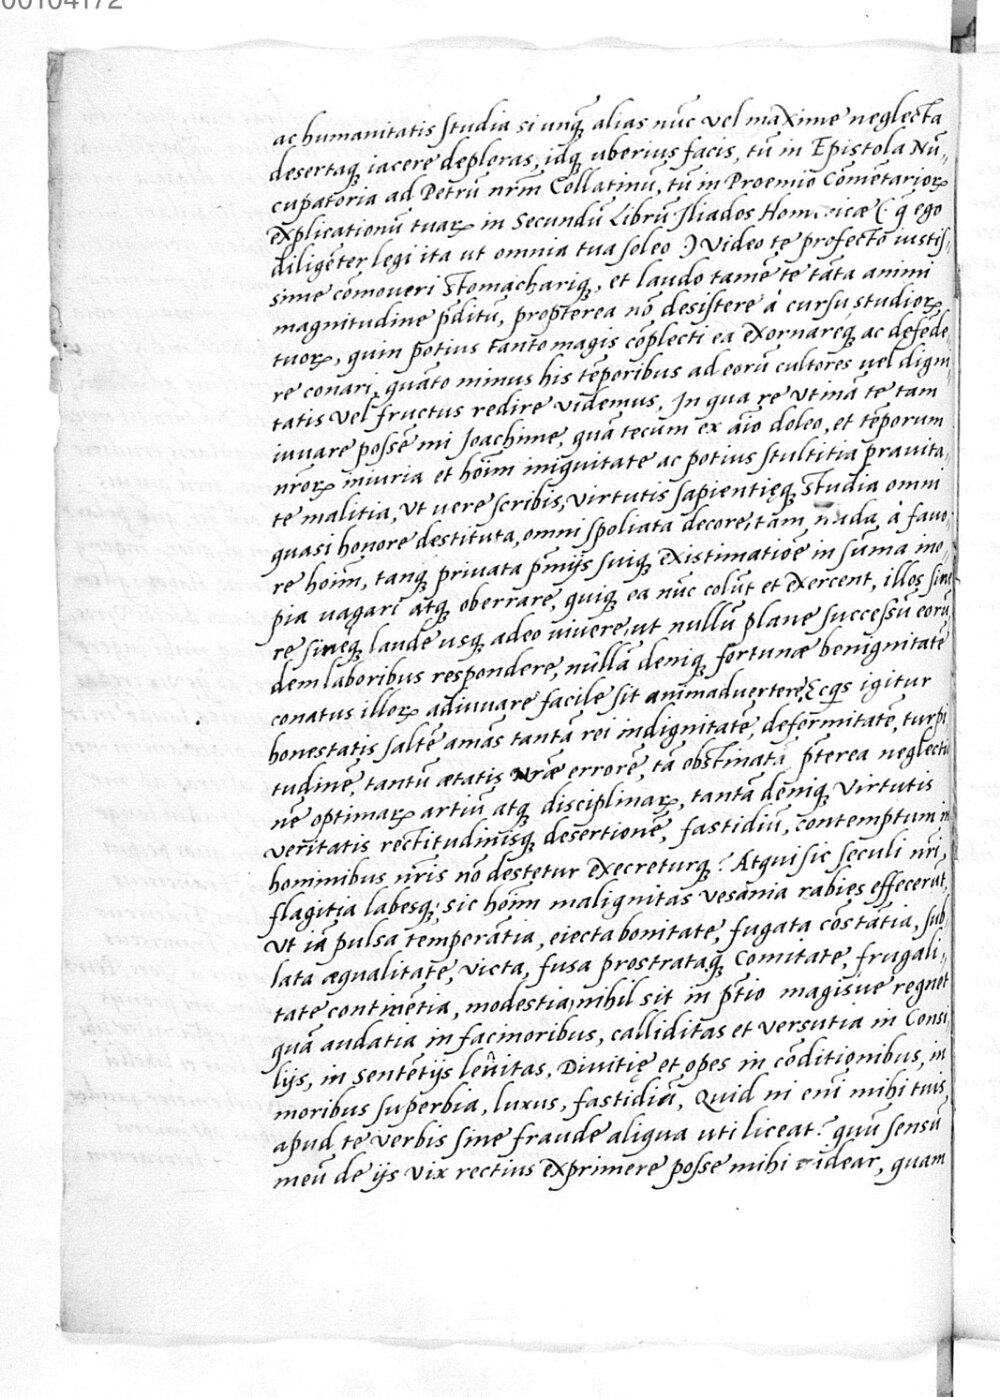 00104172
ac humanitatis studia si unq̃ alias nũc vel maxime neglecta
desertaq; iacere deploras, idq; uberius facis, tũ in Epistola Nũ„
cupatoria ad Petrũ nr̃m Collatinũ, tũ in Proemio Cõmetarioꝝ
explicationũ tuaꝝ in Secundũ Librũ Iliados Homericæ (: q̃ ego
diligẽter legi ita ut omnia tua soleo :) video te profecto iustis„
sime cõmoveri stomachariq;, et laudo tamẽ te tãta animi
magnitudine p̃ditũ, propterea nõ desistere à cursu studioꝝ
tuoꝝ, quin potius tanto magis cõplecti ea exornareq; ac defẽde„
re conari, quãto minus his tẽporibus ad eorũ cultores vel digni
tatis vel fructus redire videmus. In qua re utinã te tam
iuvare possẽ mi Joachime, quã tecum ex aĩo doleo, et tẽporum
nr̃oꝝ iniuria et hoĩm iniquitate ac potius stultitia pravita„
te malitia, ut vere scribis, virtutis sapientięq; studia omni
quasi honore destituta, omni spoliata decore, tam nuda à favo„
re hoĩm, tanq; privata p̃mijs suiq; existimatiõe in sũma ino„
pia vagari atq; oberrare, quiq; ea nũc colũt et exercent, illos sine
re sineq; laude usq; adeo vivere, ut nullũ plane successũ eorũ
dem laboribus respondere, nũllã deniq; fortunæ benignitatẽ
conatus illoꝝ adiuvare facile sit animadvertere. Ecq̃s igitur
honestatis saltẽ amãs tantã rei indignitatẽ, deformitatẽ, turpi
tudinẽ, tantũ ætatis nr̃æ errorẽ, tã obstinatã p̃terea neglectio
nẽ optimaꝝ artiũ atq; disciplinaꝝ, tantã deniq; virtutis
veritatis rectitudinisq; desertionẽ, fastidiũ, contemptum in
hominibus nr̃is nõ destetur execreturq;? Atqui sic seculi nr̃i
flagitia labesq;, sic hoĩm malignitas vesania rabies effecerũt,
ut iã pulsa temperãtia, eiecta bonitate, fugata cõstãtia, sub„
lata æqualitate, victa, fusa prostrataq; comitate, frugali„
tate continẽtia, modestia, nihil sit in p̃tio magisve regnet
quã audatia in facinoribus, calliditas et versutia in Consi
lijs, in sentẽtijs levitas. Divitię et opes in cõditionibus, in
moribus superbia, luxus, fastidiũ. Quid ni eni mihi tuis
apud te verbis sine fraude aliqua uti liceat? quũ sensũ
meũ de ijs vix rectius exprimere posse mihi videar, quam